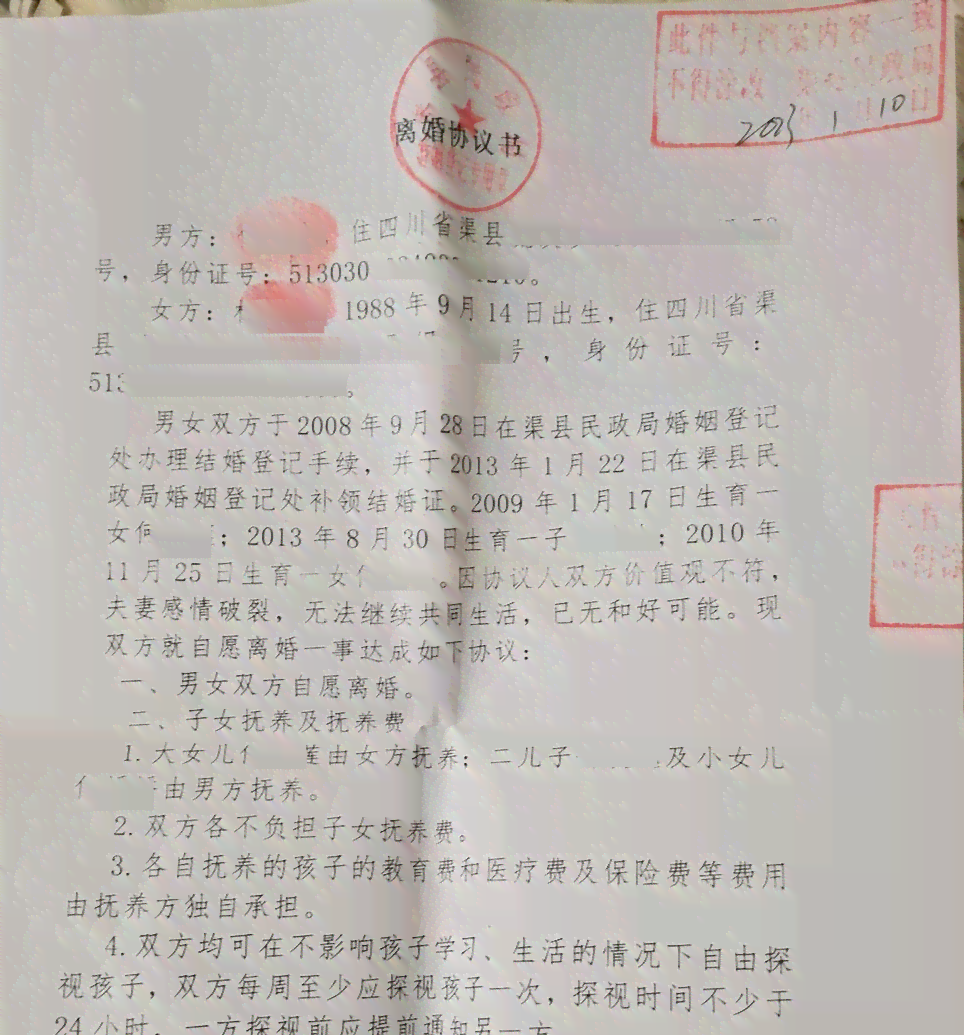 此件与档案内容一致
不得涂改
2023 1 10日
离婚协议书
男方： 住四川省渠县
号，身份证号：513030
女方： 1988年9月14日出生，住四川省渠
县 号，身份证号：
513 。
男女双方于2008年9月28日在渠县民政局婚姻登记
处办理结婚登记手续，并于2013年1月22日在渠县民
政局婚姻登记处补领结婚证。2009年1月17日生育一
女 ；2013年8月30日生育一子 ；2010年
11月25日生育一女 。因协议人双方价值观不符，
夫妻感情破裂，无法继续共同生活，已无和好可能。现
双方就自愿离婚一事达成如下协议：
一、男女双方自愿离婚。
二、子女抚养及抚养费
1.大女儿 由女方抚养；二儿子 及小女儿
由男方抚养。
2.双方各不负担子女抚养费。
3.各自抚养的孩子的教育费和医疗费及保险费等费用
由抚养方独自承担。
4.双方均可在不影响孩子学习、生活的情况下自由探
视孩子，双方每周至少应探视孩子一次，探视时间不少于
24小时，一方探视前应提前通知另一方